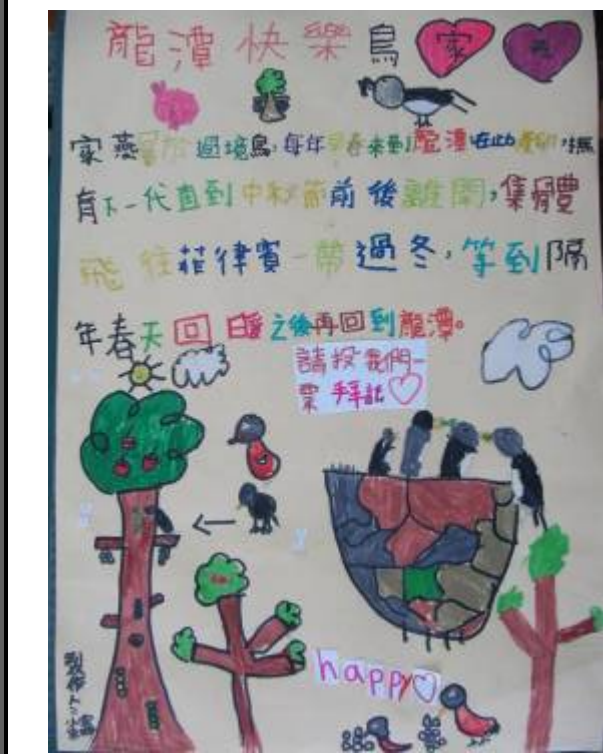 龍潭快樂鳥家燕
家燕屬於過境鳥,每年早春來到龍潭在此產卵,撫
育下一代直到中秋節前後離開,集體
飛往菲律賓一帶過冬,等到隔
年春天回暖之後再回到龍潭。
請投我們一
票 拜託
happy